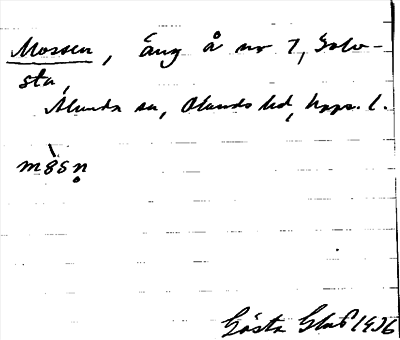 Mossen, äng å nr 7, Golv-
sta,
Alunda sn, Olands hd, Upps. l.
Gösta 1936